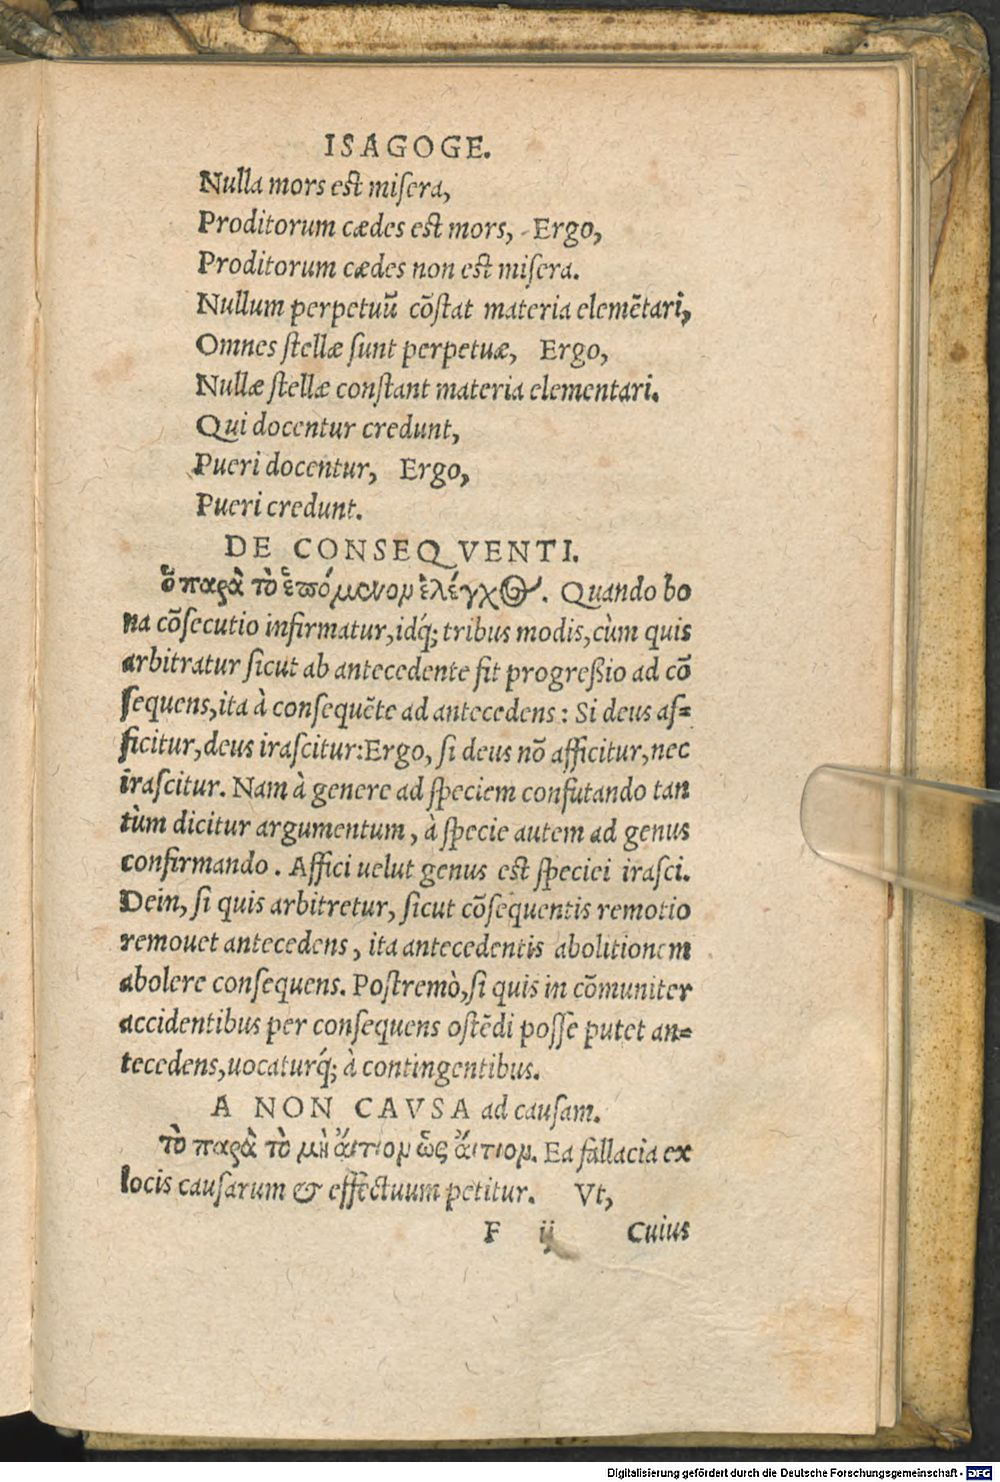 ISAGOGE.
Nulla mors est miſera,
Proditorum cædes est mors, Ergo,
Proditorum cædes non est miſera.
Nullum perpetuū cōſtat materia elemētari,
Omnes ſtellæ ſunt perpetuæ, Ergo,
Nullæ ſtellæ conſtant materia elementari.
Qui docentur credunt,
Pueri docentur, Ergo,
Pueri credunt.
DE CONSEQVENTI.
ὅ παρὰ τὸ ἑπόμενον ἐλέγχος. Quando bo
na cōſecutio infirmatur, idq́; tribus modis, cùm quis
arbitratur ſicut ab antecedente fit progreßio ad cō
ſequens, ita à conſequēte ad antecedens: Si deus af=
ficitur, deus iraſcitur: Ergo, ſi deus nō afficitur, nec
iraſcitur. Nam à genere ad ſpeciem confutando tan
tùm dicitur argumentum, à ſpecie autem ad genus
confirmando. Affici uelut genus est ſpeciei iraſci.
Dein, ſi quis arbitretur, ſicut cōſequentis remotio
remouet antecedens, ita antecedentis abolitionem
abolere conſequens. Poſtremò, ſi quis in cōmuniter
accidentibus per conſequens oſtēdi poſſe putet an=
tecedens, uocaturq́; à contingentibus.
A NON CAVSA ad cauſam.
τὸ παρὰ τὸ μὴ ἄιτιον ὡς ἄιτιον. Ea fallacia ex
locis cauſarum & effectuum petitur. Vt,
F ij Cuius
Digitalisierung gefördert durch die Deutsche Forschungsgemeinschaft - DFG